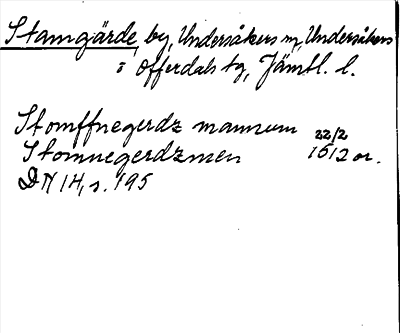 Stamgärde, by, Undersåkers sn, Undersåkers
o Offerdals tg, Jämtl. l.
Stomffnegerdz mannum 22/2
Stomnegerdzmen 1512 or.
DN 14, s. 195